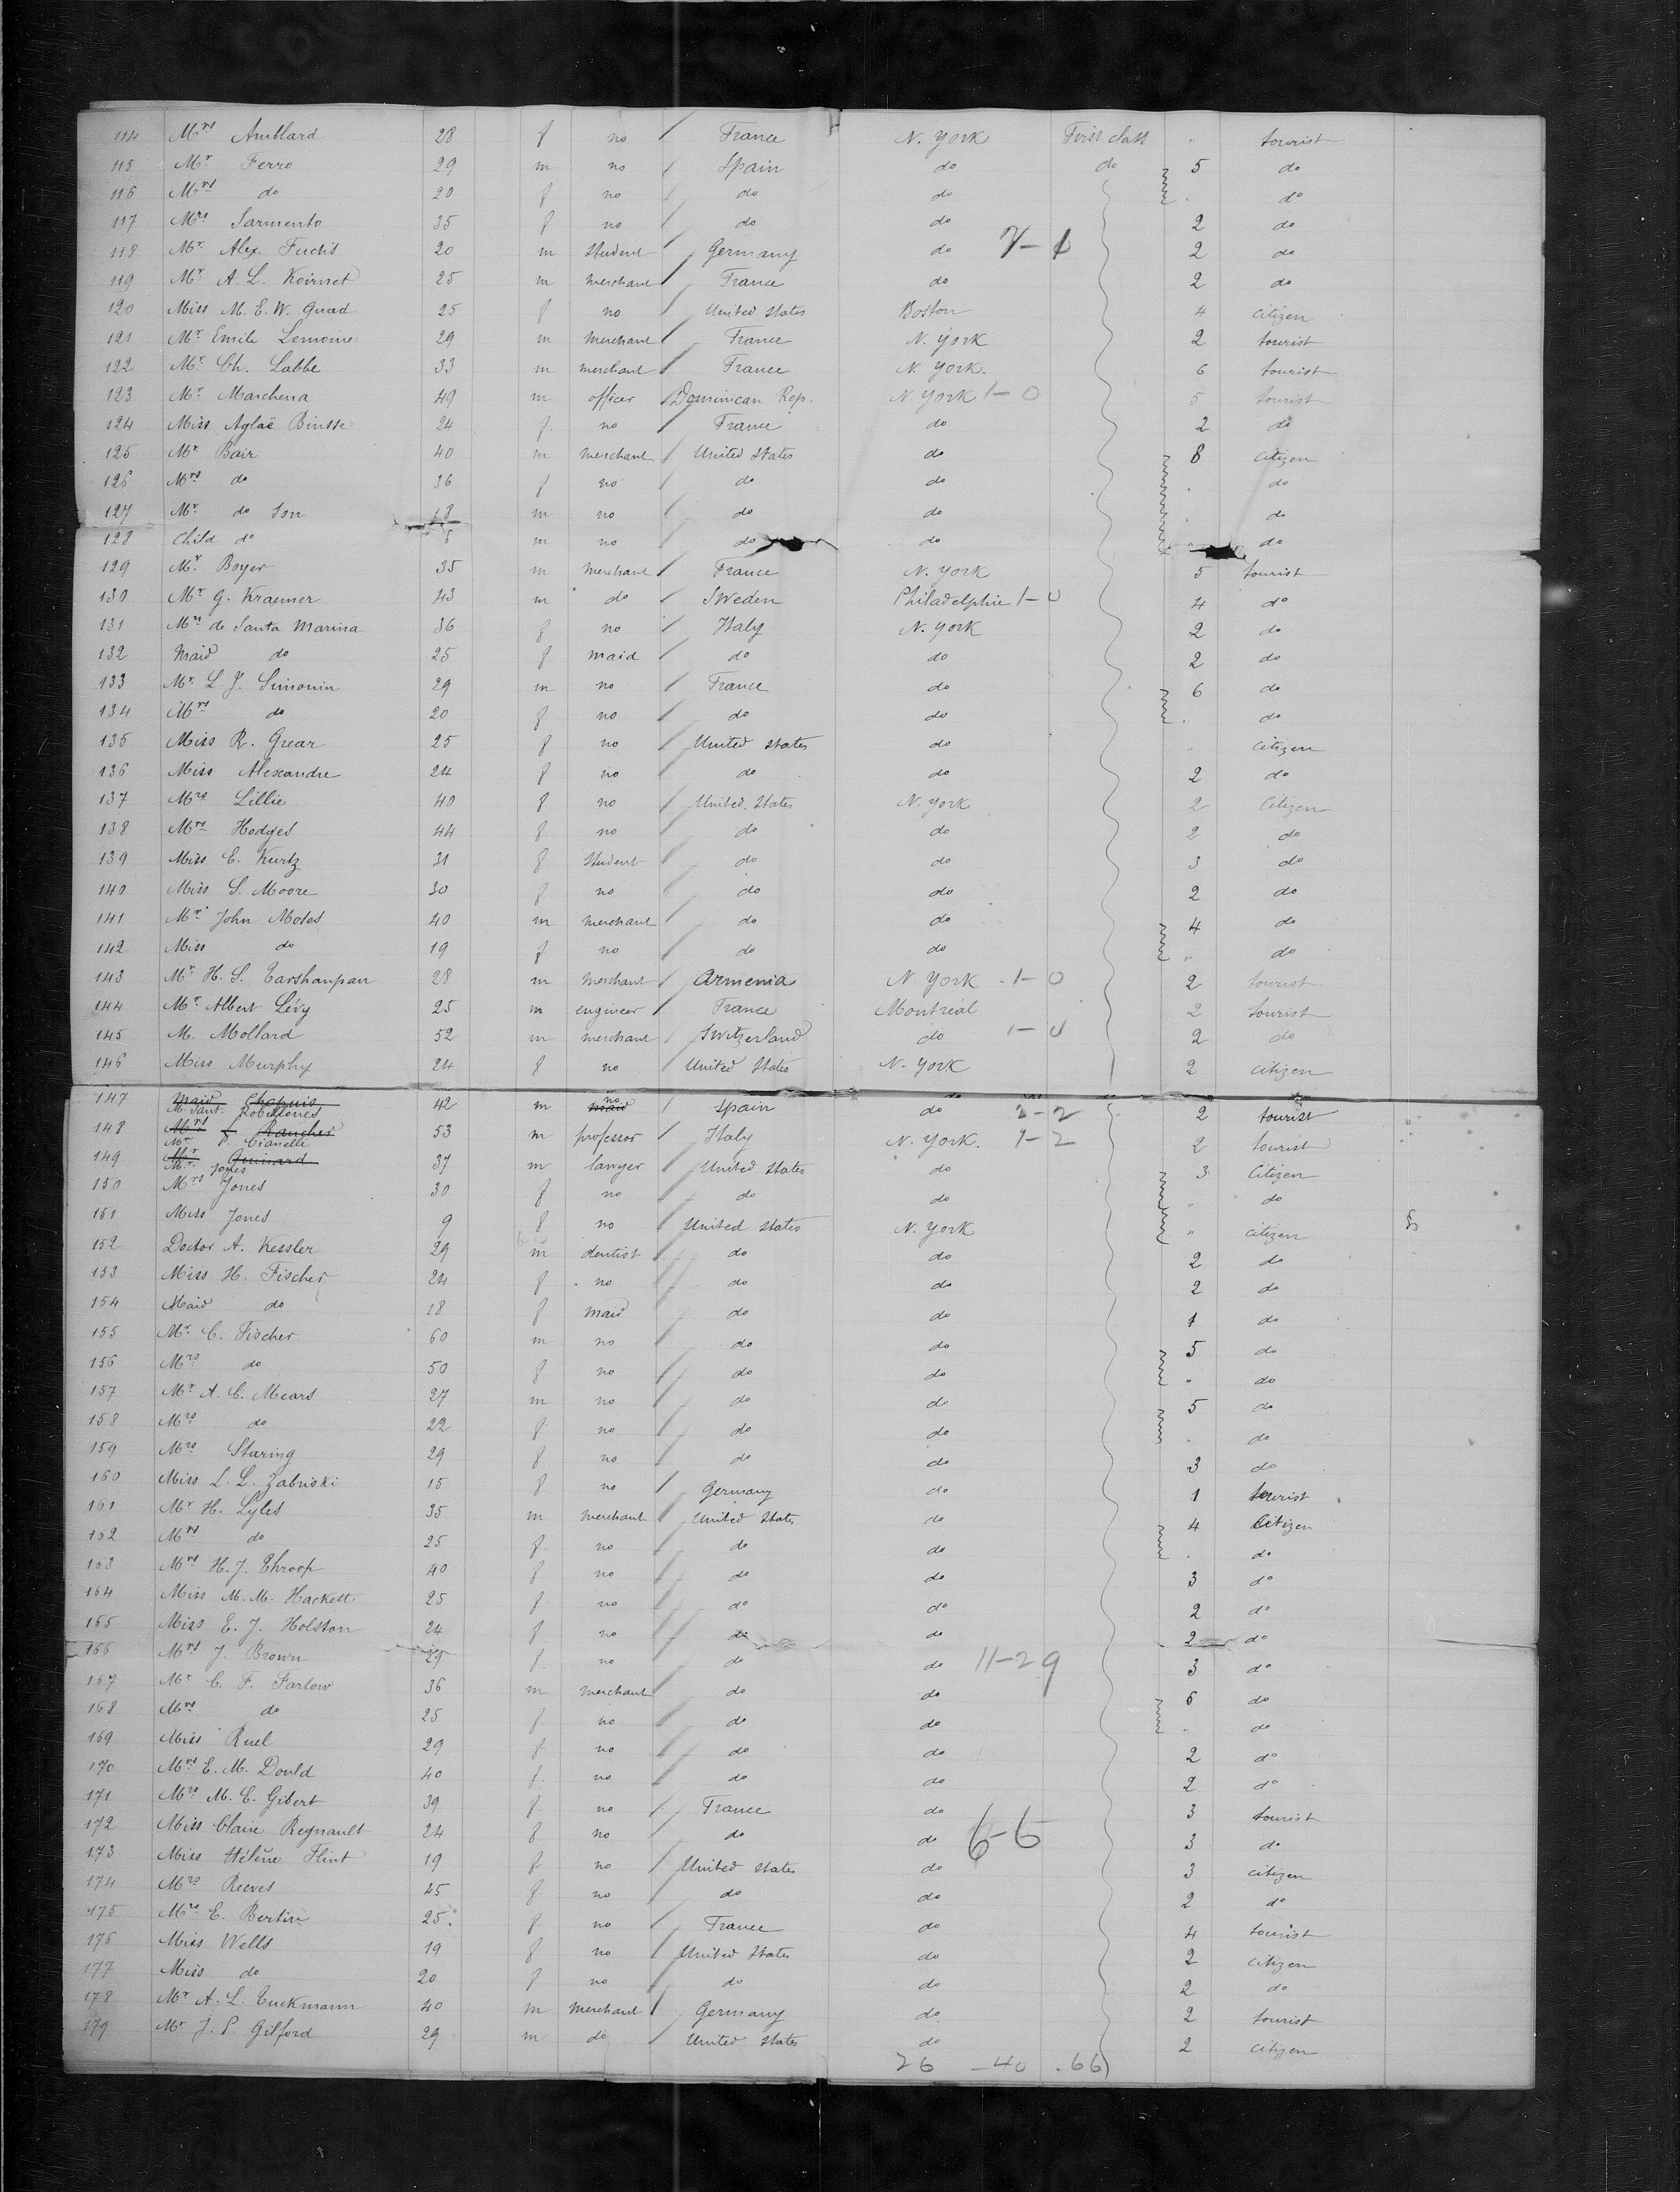 114 Mrs Amblard 28 f no / France N. York First class " tourist
115 Mr Ferro 29 m no / Spain do do 5 do
116 Mrs do 20 f no / do do " do
117 Mrs Sarmento 35 f no / do do 2 do
118 Mr. Alex. Fuchs 20 m student / Germany do 7-1 2 do
119 Mr A. L. 25 m merchant / France do 2 do
120 Miss M. E. W. Quad 25 f no / United States Boston 4 citizen
121 Mr Emile Lemoine 29 m merchant / France N. York 2 tourist
122 Mr. Ch. Labbe 33 m merchant / France N. York. 6 tourist
123 Mr Marchena 49 m officer / Dominican Rep. N. York 1-0 5 tourist
124 Miss Aglaë Binsse 24 f. no / France do 2 do
125 Mr Bair 40 m merchant / United States do 8 citizen
126 Mrs do 36 f no / do do " do
127 Mr do Son 18 m no / do do " do
128 Child do m no do do " do
129 Mr. Boyer 35 m merchant / France N. York 5 tourist
130 Mr G. Kraemer 43 m do / Sweden Philadelphie 1-0 4 do
131 Mrs de Santa Marina 36 f no / Italy N. York 2 do
132 Maid do 25 f maid / do do 2 do
133 Mr. L. J. Simonin 29 m no / France do 6 do
134 Mrs do 20 f no / do do " do
135 Miss R. Grear 25 f no / United States do " citizen
136 Miss Alexandre 24 f no / do do 2 do
137 Mrs Lillie 40 f no / United States N. York 2 Citizen
138 Mrs Hodges 44 f no / do do 2 do
139 Miss E. Kurtz 31 f student / do do 3 do
140 Miss S. Moore 30 f no / do do 2 do
141 Mr John Moses 40 m merchant / do do 4 do
142 Miss do 19 f no / do do " do
143 Mr H. S. Tarshanpan 28 m merchant / Armenia N. York 1-0 2 tourist
144 Mr. Albert Lévy 25 m engineer / France Montréal 2 tourist
145 M. Mollard 52 m merchant / Switzerland do 1-0 2 do
146 Miss Murphy 24 f no / United States N. York 2 citizen
147 Maid Chapuis 42 m no / Spain do 2 tourist
148 P. Cianelle 53 m professor / Italy N. York. 1-2 2 tourist
149 Mr. Jones 37 m lawyer / United States do 3 Citizen
150 Mrs Jones 30 f no / do do " do
151 Miss Jones 9 f no / United States N. York " citizen
152 Doctor A. Kessler 29 m dentist / do do 2 do
153 Miss H. Fischer 24 f no / do do 2 do
154 Maid do 18 f maid / do do 1 do
155 Mr. C. Fischer 60 m no / do do 5 do
156 Mrs do 50 f no / do do " do
157 Mr. A. C. Mears 27 m no / do do 5 do
158 Mrs do 22 f no / do do " do
159 Mrs Staring 29 f no / do do 3 do
160 Miss L. L. Zabriski 15 f no / Germany do 1 tourist
161 Mr H. Lyles 35 m merchant / United States do 4 Citizen
162 Mrs do 25 f no / do do " do
163 Mrs H. J. Throop 40 f no / do do 3 do
164 Miss M. M. Hackett 25 f no / do do 2 do
165 Miss E. J. Holston 24 f no / do do 2 do
166 Mrs J. Brown f no / do do 11-29 3 do
167 Mr C. F. Farlow 36 m merchant / do do 6 do
168 Mrs do 25 f no / do do " do
169 Miss Ruel 29 f no / do do 2 do
170 Mrs E. M. Dould 40 f no / do do 2 do
171 Mrs M. E. Gibert 39 f no / France do 3 tourist
172 Miss Claire Regnault 24 f no / do do 6-6 3 do
173 Miss Hélène Flint 19 f no / United States do 3 citizen
174 Mrs Reeves 45 f no / do do 2 do
175 Mrs E. Bertin 25 f no / France do 4 tourist
176 Miss Wells 19 f no / United States do 2 citizen
177 Miss do 20 f no / do do 2 do
178 Mr. A. L. Tuckmann 40 m merchant / Germany do 2 tourist
179 Mr J. P. Gilford 29 m do / United States do 2 citizen
26 - 40 . 66